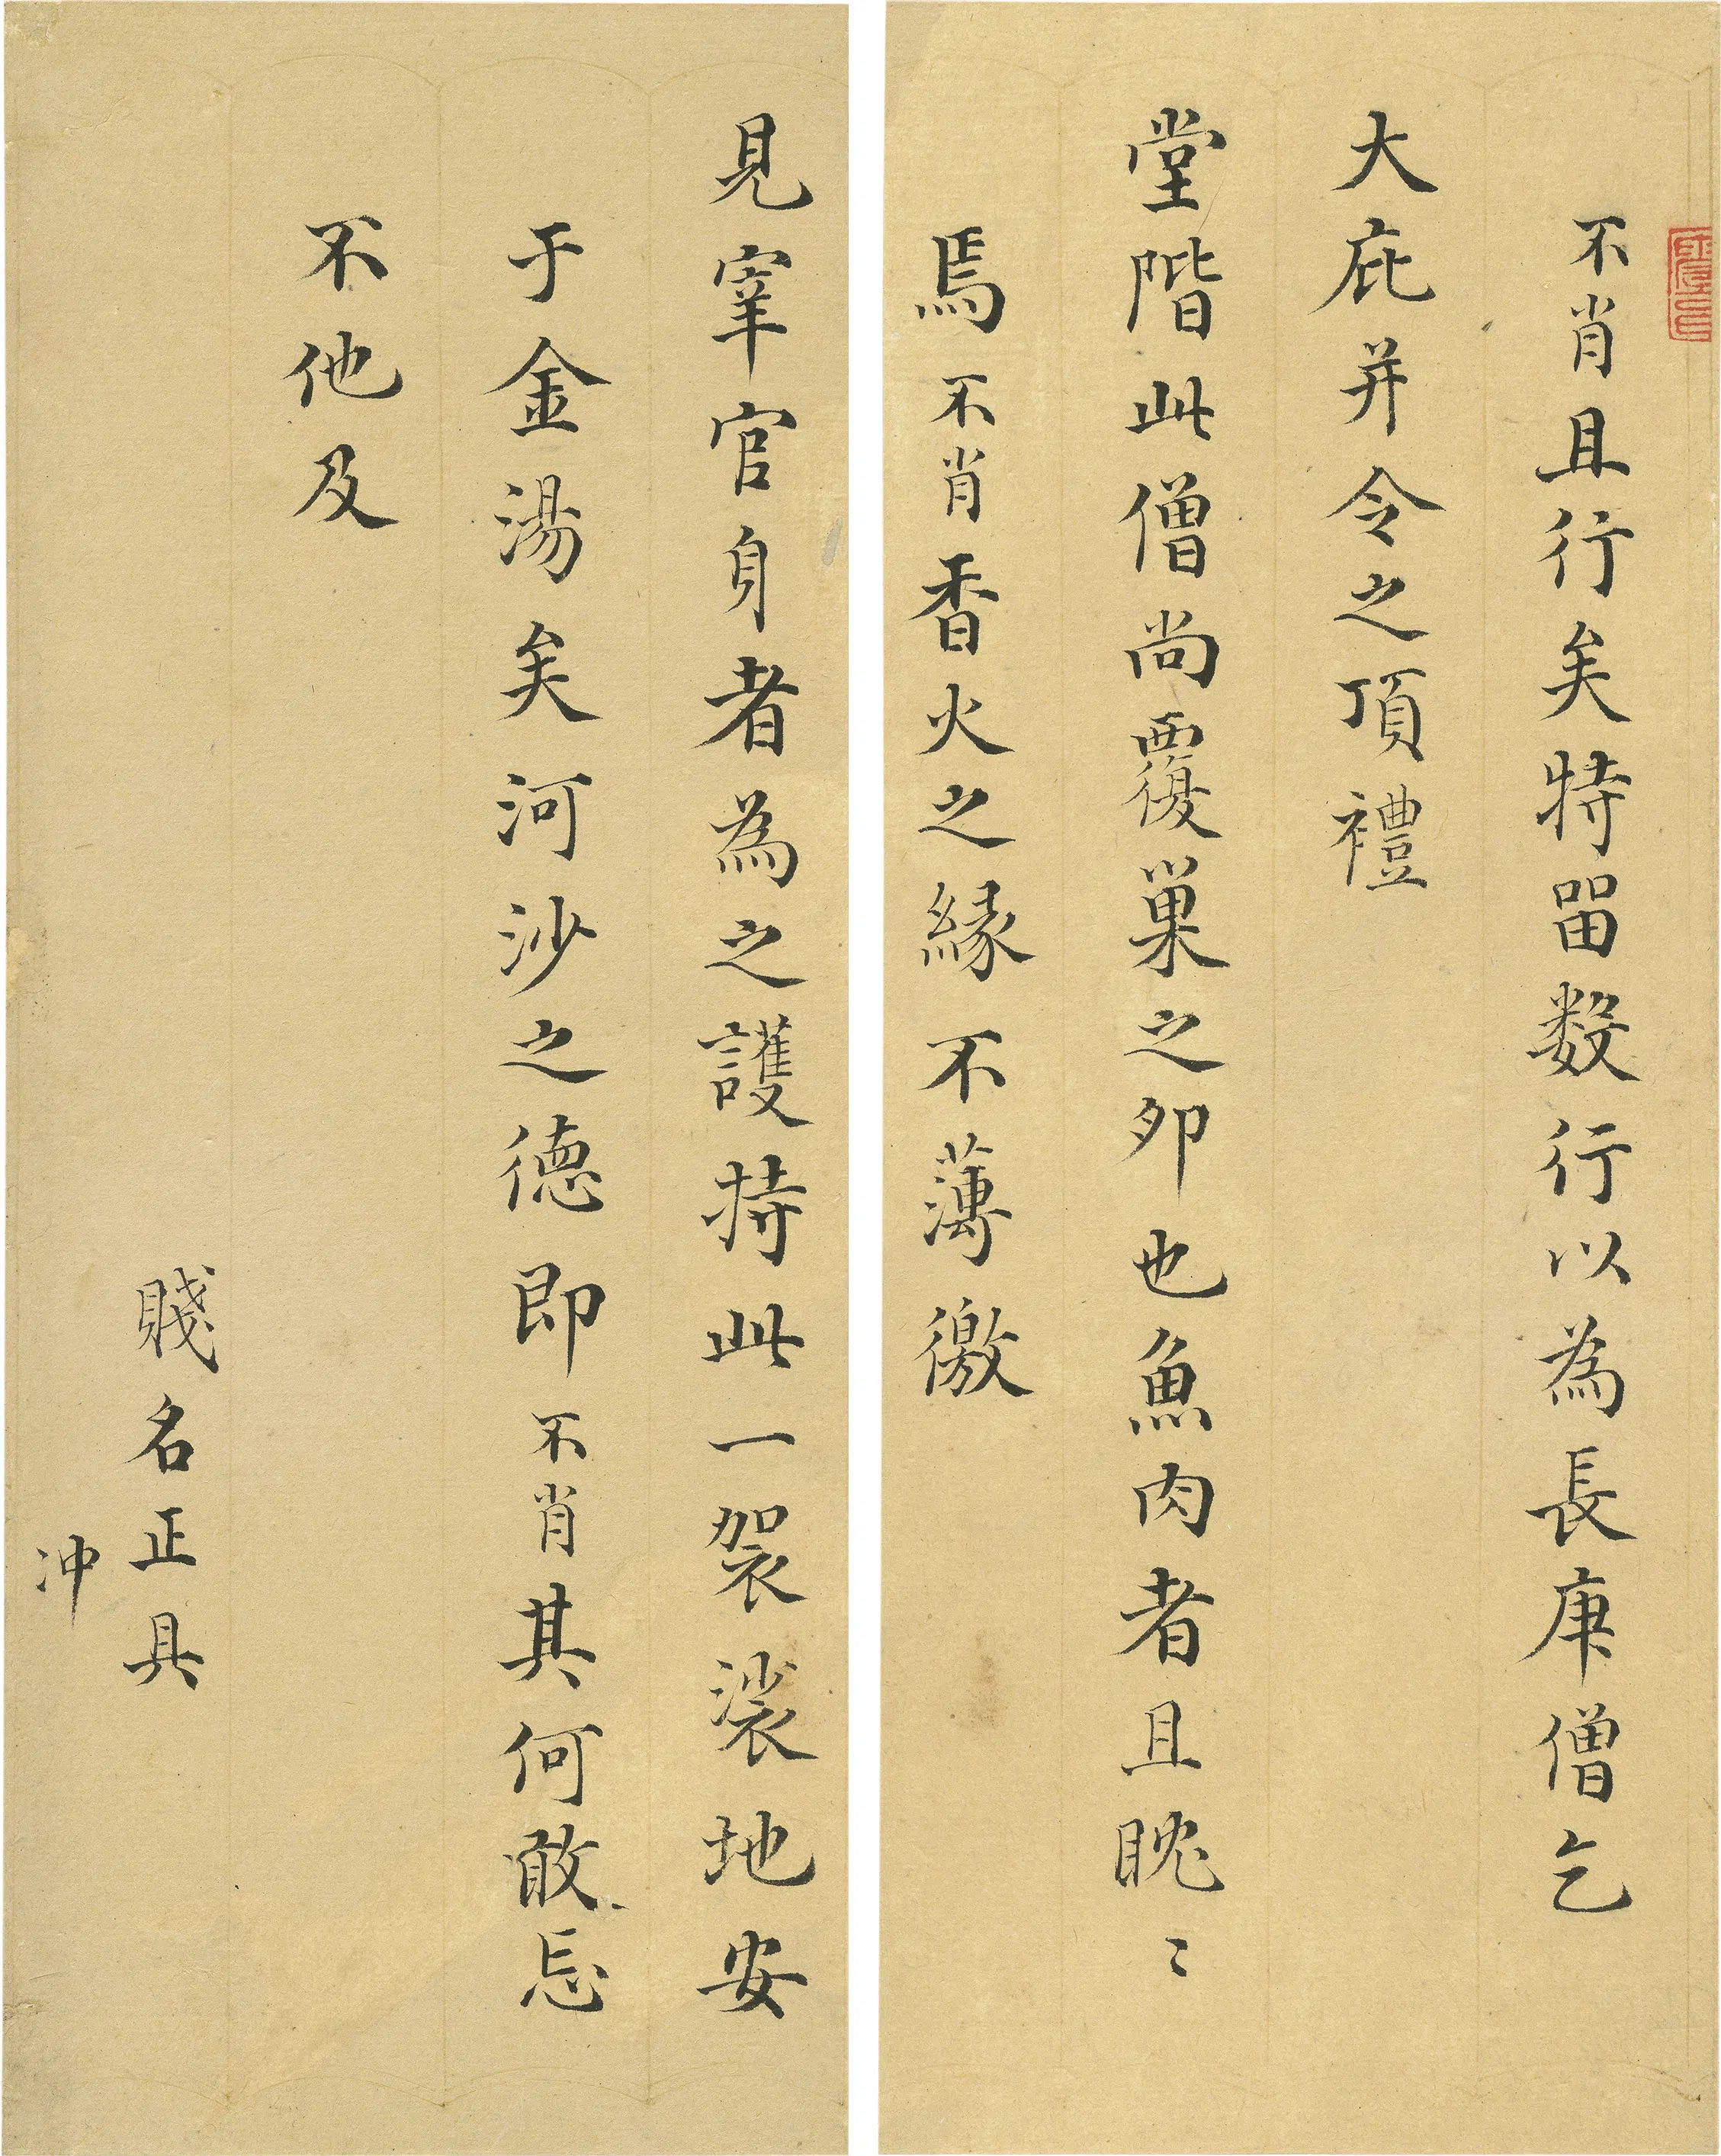 不肖且行矣特畱数行以為長庚僧乞
大庇并令之頂禮
堂階此僧尚覆巢之夘也魚肉者且眈〻
焉不肖香火之緣不薄徼
見宰官身者為之護持此一袈裟地安
于金湯矣河沙之德即不肖其何敢忘
不他及
賤名正具
冲